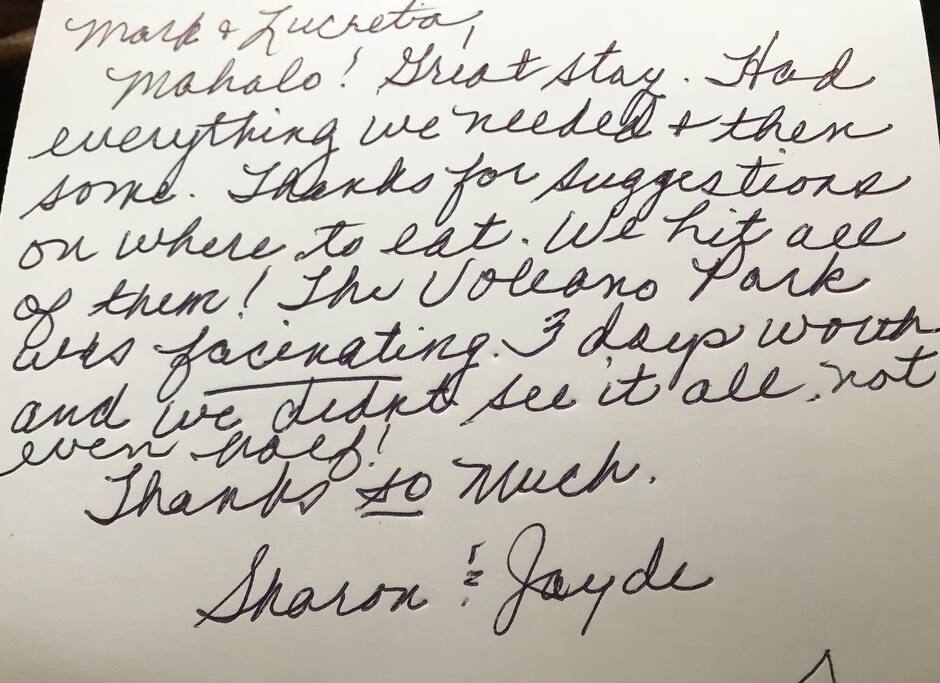 Mark & Lucretia,
Mahalo! Great stay. Had
everything we needed & then
some. Thanks for suggestions
on where to eat. We hit all
of them! The Volcano Park
was facinating. 3 days worth
and we didnt see it all, not
even half!
Thanks so much.
Sharon & Jayde